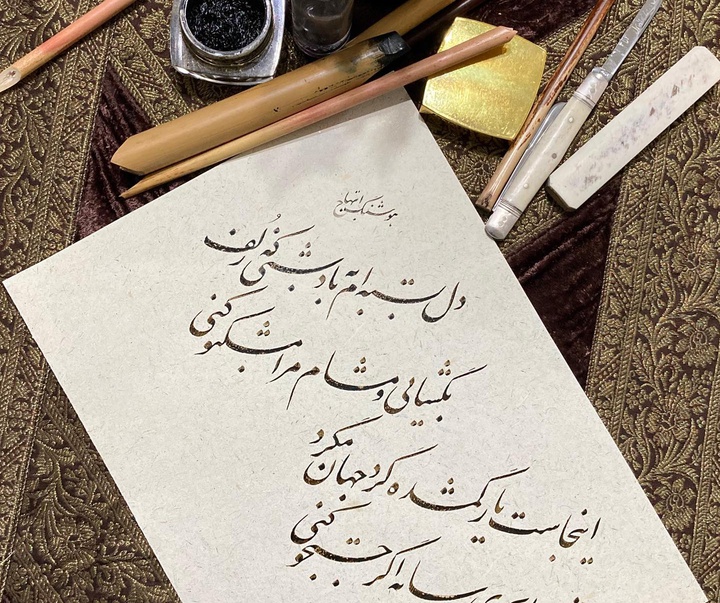 هوشنگ ابتهاج
دل بسته ام به باد شبی که زلف
بگشایی و مشام مرا مشکبو کنی
اینجاست یار گمشده گرد جهان مگرد
سایه اگر جستجو کنی